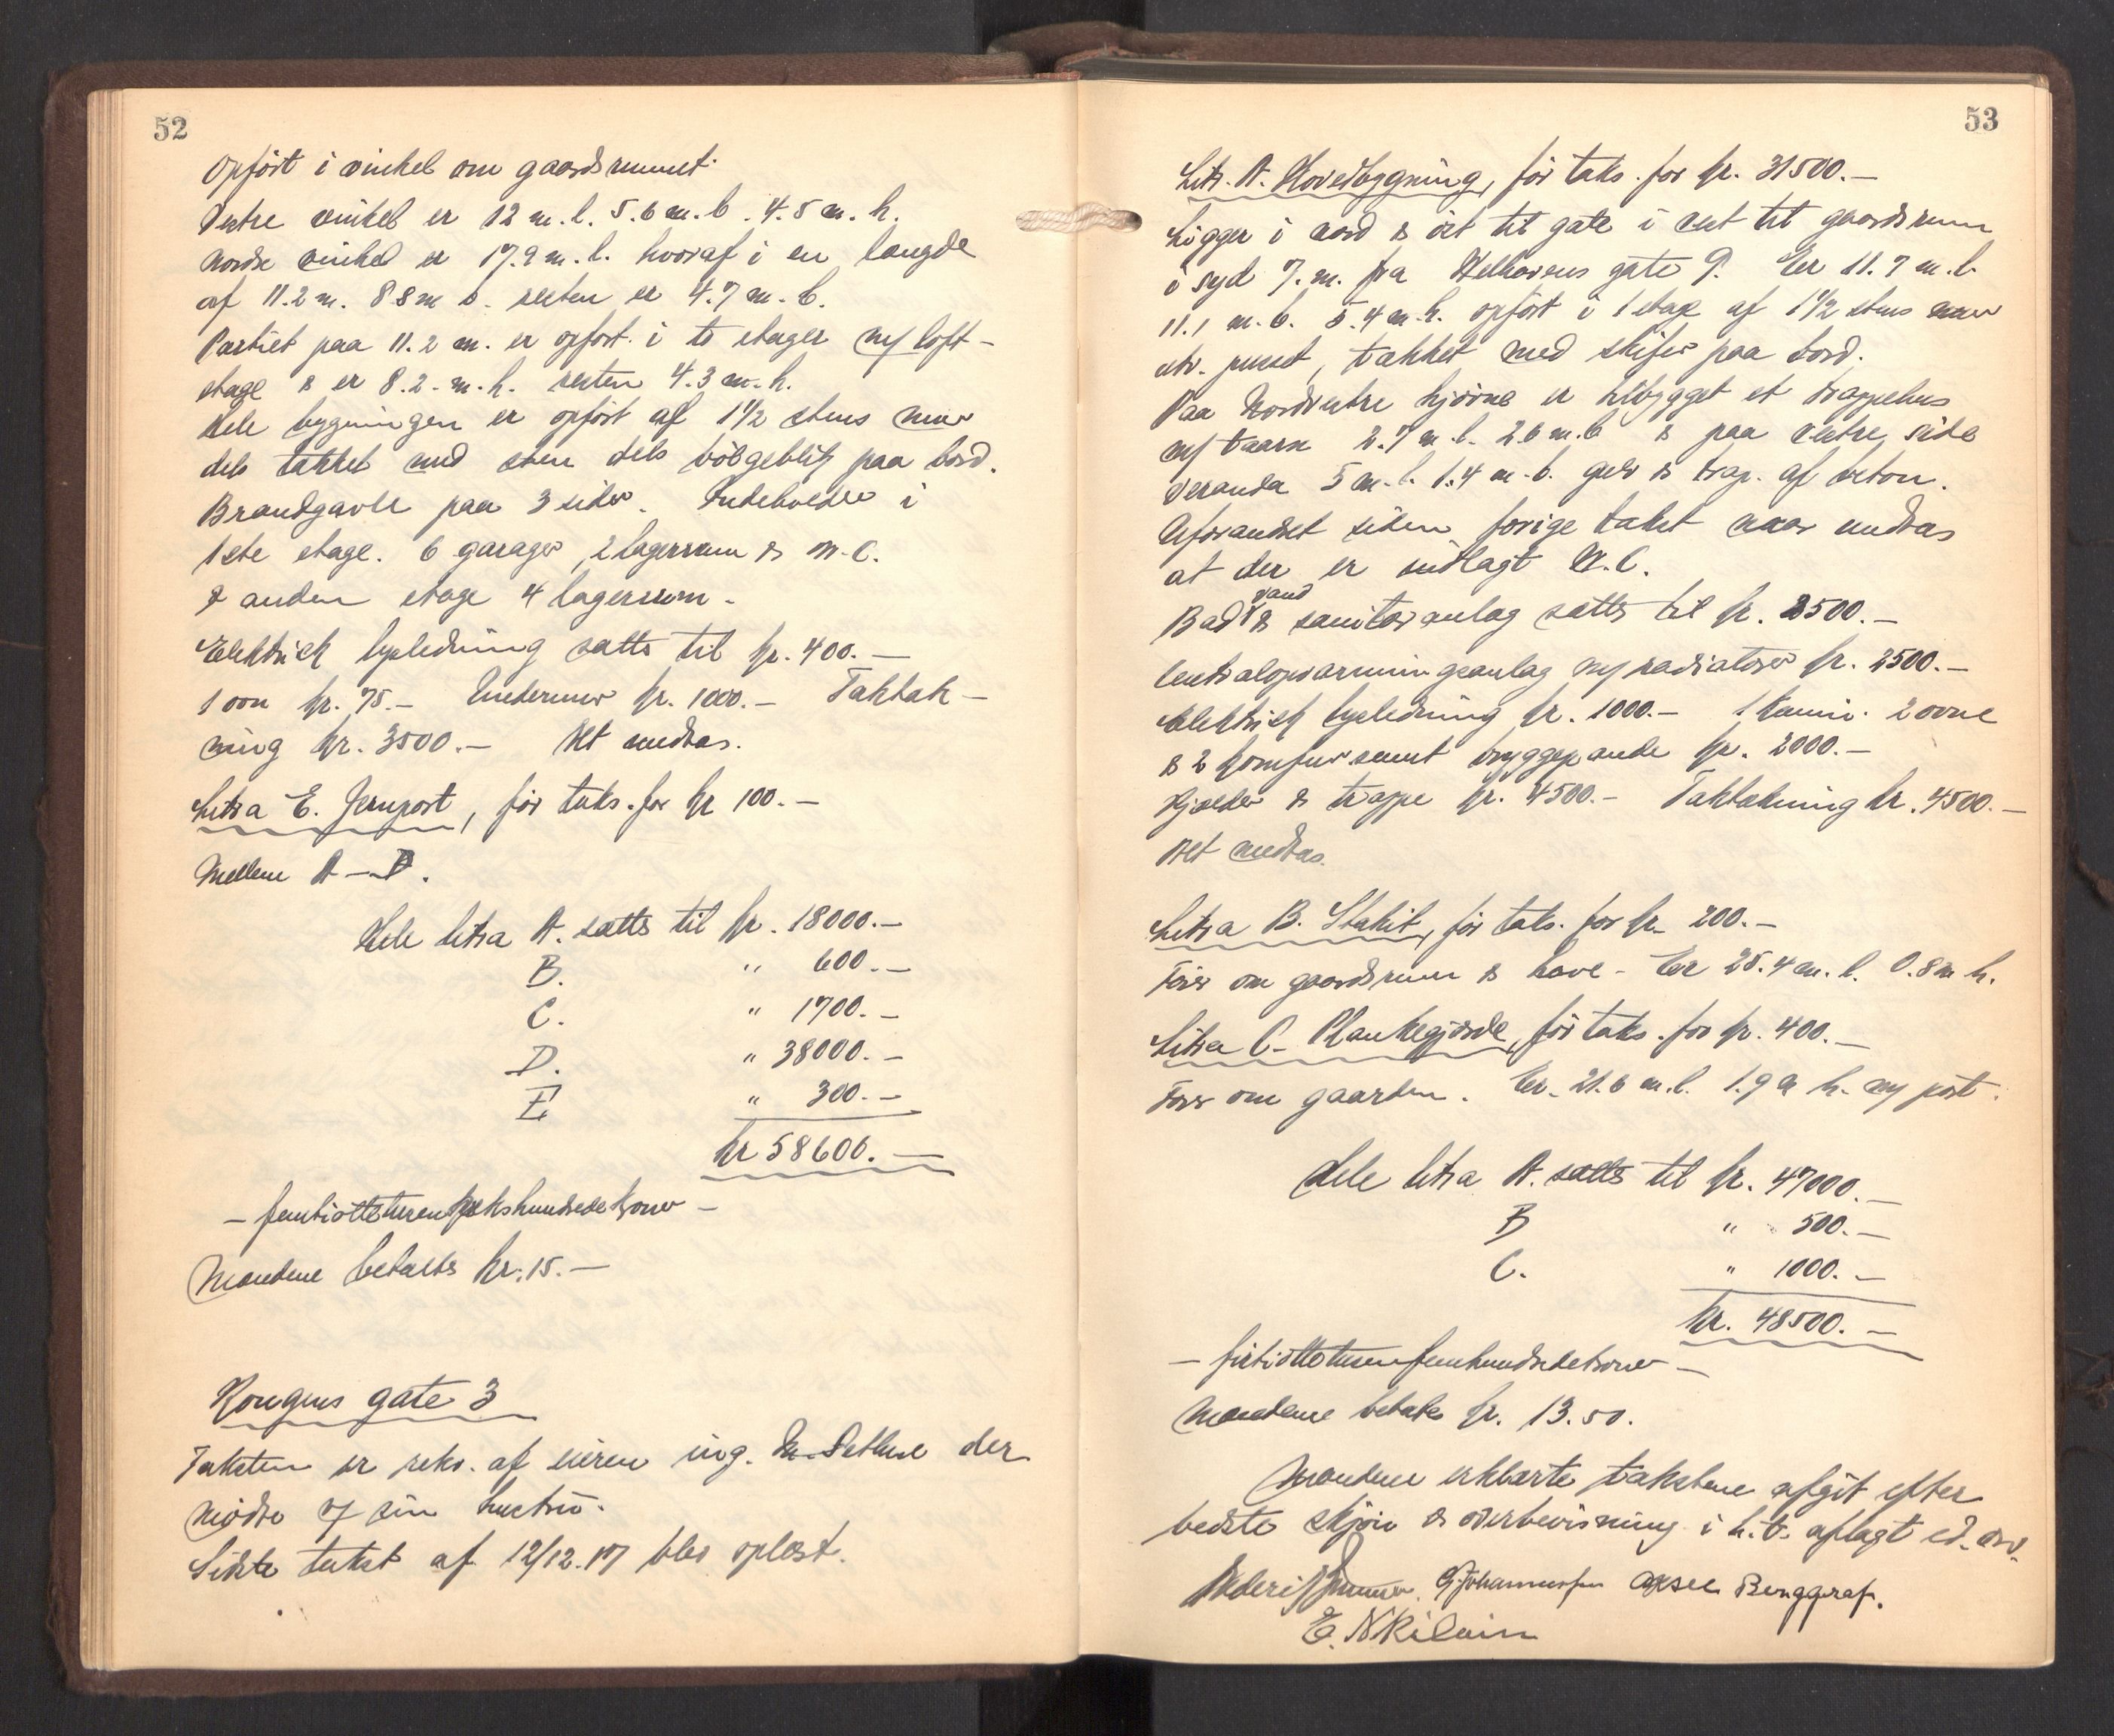 52
Opført i vinkel om gaardsrummet.
Vestre vinkel er 12 m. l. 5.6 m. b. 4.5 m. h.
Nordre vinkel er 17.9 m. l. hvoraf i en længde
af 11.2 m. 8.8 m b. resten er 4.7 m. b.
Partiet paa 11.2 m. er opført i to etager m/ loft-
etage & er 8.2. m. h. resten 4.3 m. h.
Hele bygningen er opført af 1 1/2 stens mur
dels tækket med sten dels bølgeblik paa bord.
Brandgavle paa 3 sider. Indeholder i
1ste etage. 6 garager, 2 lagerrum & W.C.
I anden etage 4 lagerrum.
Elektrisk lysledning sættes til kr. 400.—
1 ovn kr. 75.— Undermur kr. 1000.— Taktæk-
ning kr. 3500.— Alt medtas.
Litra E. Jernport, før taks. for kr 100.—
Mellem A — D.
Hele litra A. sættes til kr. 18000.—
B. " 600.—
C. " 1700.—
D. " 38000.—
E " 300.—
kr 58600.—
— femtiottetusensekshundredekroner —
Mændene betaltes kr. 15.—
Kongens gate 3
Taksten er rekv. af eieren ing. der
mødte v/ sin hustru.
Sidste takst af 12/12.17 blev oplæst.
53
Litr. A. Hovedbygning, før taks. for kr. 31500.—
Ligger i nord & øst til gate i vest til gaardsrum
i syd 7. m. fra Welhavens gate 9. Er 11.7 m. l.
11.1 m. b. 5.4 m. h. opført i 1 etage af 1 1/2 stens mur
utv. pusset, tækket med skifer paa bord.
Paa Nordvestre hjørne er tilbygget et trappehus
m/ taarn 2.7 m. l. 2.6 m. b & paa vestre side
veranda 5 m. l. 1.4 m. b. gulv & trap. af beton.
Uforandret siden forige takst naar undtas
at der er indlagt W.C.
Bad vand & sanitæranlæg sættes til kr. 2500.—
Centralopvarmningsanlæg m/ radiatorer kr. 2500.—
Elektrisk lysledning kr. 1000.— 1 kamin. 2 ovne
& 2 komfur samt bryggepande kr. 2000.—
Kjælder & trappe kr. 4500.— Taktækning kr. 4500.—
Alt medtas.
Litra B. Stakit, før taks. for kr. 200.—
Fører om gaardsrum & have. Er 25.4 m. l. 0.8 m h.
Litra C. Plankegjærde, før taks. for kr. 400.—
Fører om gaarden. Er 21.6 m. l. 1.9 m h. m/ port.
Hele litra A. sættes til kr. 47000.—
B " 500.—
C. " 1000.—
kr. 48500.—
— førtiottetusenfemhundredekroner —
Mændene betaltes kr. 13.50.
Mændene erklærte takstene afgit efter
bedste skjøn & overbevisning i h. t. aflagt ed.
G. Johannessen Aksel Berggraf.